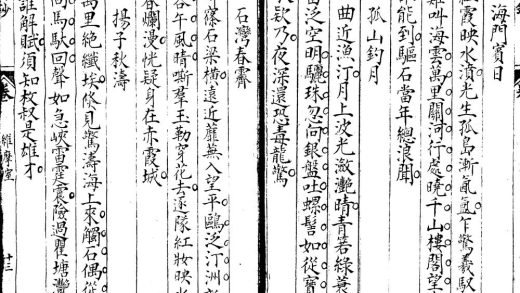 海門賓日
紅霞映水濱光生孤島漸氤氳乍驚羲馭
叫海雲萬里關河行處曉千山樓閣望
能到驅石當年總浪聞
孤山釣月
曲近漁汀月上波光瀲灩晴青箬綠蓑
泛空明驪珠忽向銀盤吐螺髻如從寶
欸乃夜深還恐毒龍驚
石灣春霽
石梁橫遠近蘼蕪入望平鷗泛汀洲
谷午風晴嘶羣玉勒穿花去逐隊紅妝映水
春爛漫恍疑身在赤霞城
揚子秋濤
萬里絕纖埃見驚濤海上來觸石偶從
向馬馱回聲如急峽雷霆震險過瞿塘灩
誰解賦須知枚叔是雄才
鈔
卷
維摩室
十三